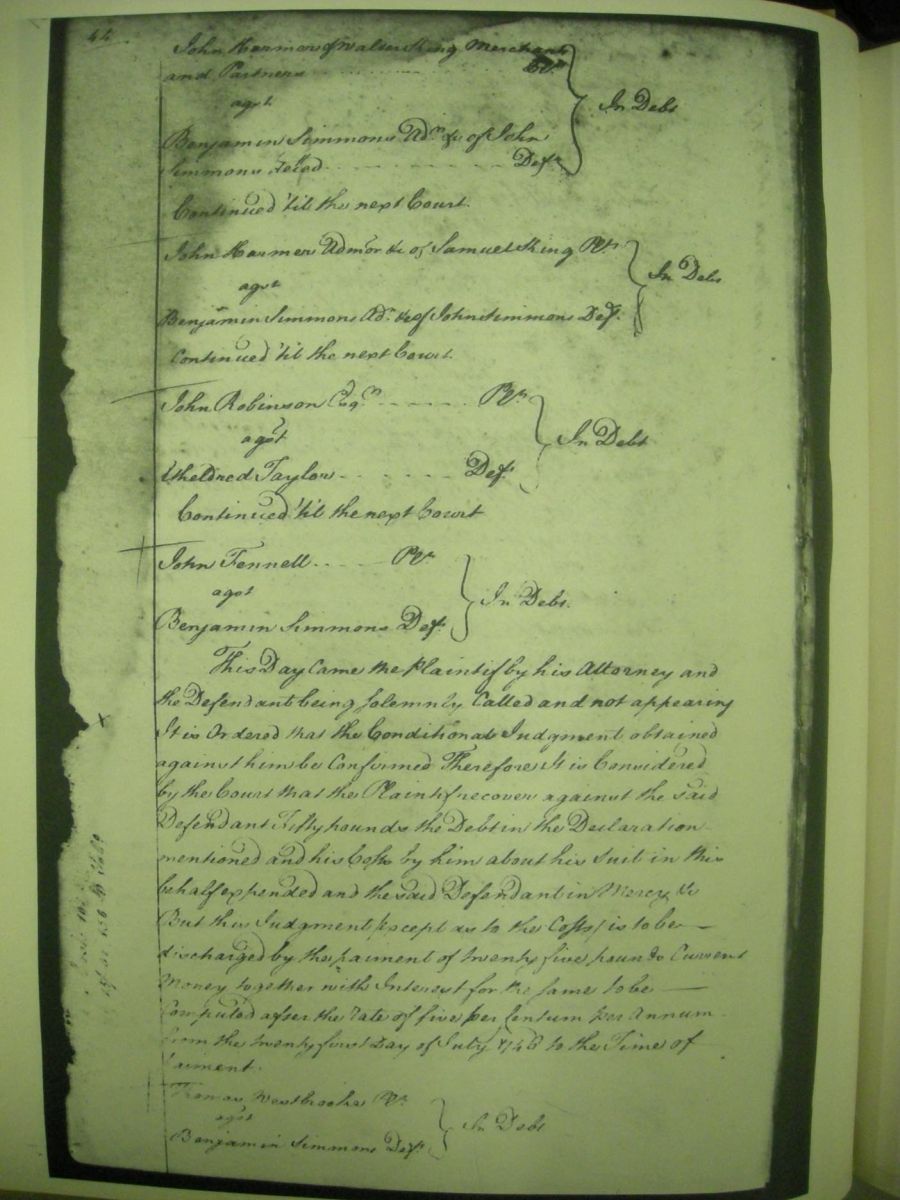 44
John Harmer & Walter King Merchants
and Partners Plts
agst
Benjamin Simmons Adm &c of John
Simmons deced Deft
In Debt
Continued 'til the next Court.
John Harmer Admor &c of Samuel King Plt
agst
Benjamin Simmons Adr &c of John Simmons Deft.
In Debt
Continued 'til the next Court.
John Robinson Esqr Plt
agst
Etheldred Taylor Deft
In Debt
Continued 'til the next Court
John Fennell Plt
agst
Benjamin Simmons Deft
In Debt.
This Day Came the Plaintif by his Attorney and
the Defendant being Solemnly Called and not appearing
It is Ordered that the Conditional Judgment obtained
against him be Confirmed Therefore It is Considered
by the Court that the Plaintif recover against the said
Defendant Fifty pounds the Debt in the Declaration
mentioned and his Costs by him about his Suit in this
behalf expended and the said Defendant in Mercy &c
But this Judgment (except as to the Costs) is to be
discharged by the paiment of twenty five pounds Current
Money together with Interest for the same to be
Computed after the rate of five per Centum per Annum
from the twenty first Day of July 1746 to the Time of
paiment.
Thomas Westbrooke Plt
agst
Benjamin Simmons Deft
In Debt